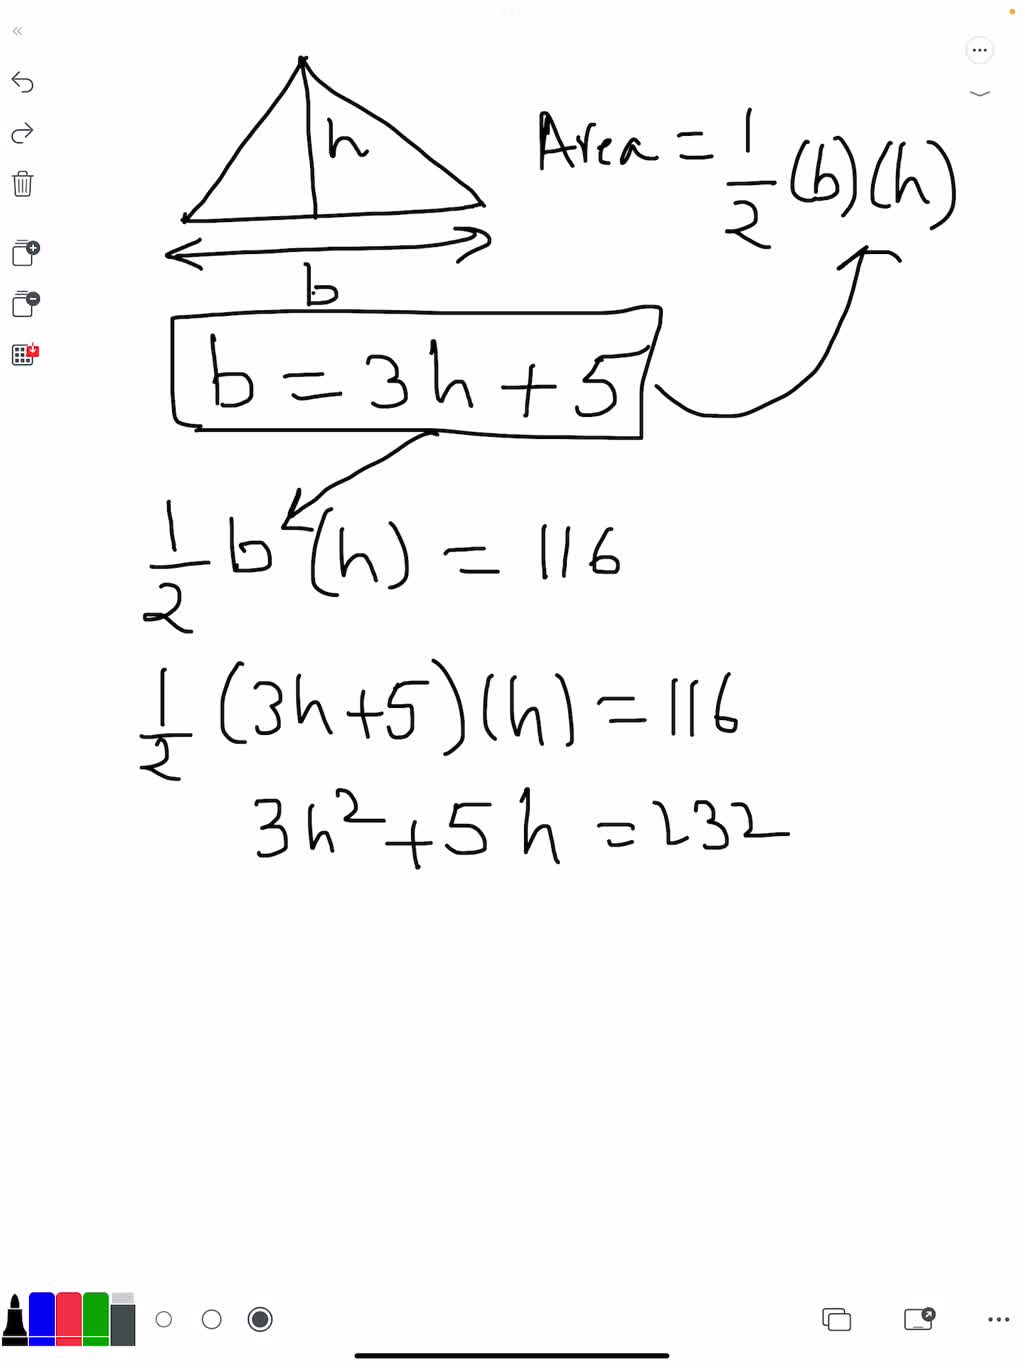 h
Area = 1/2 (b)(h)
b
b = 3h + 5
1/2 b (h) = 116
1/2 (3h+5)(h) = 116
3h² + 5h = 232